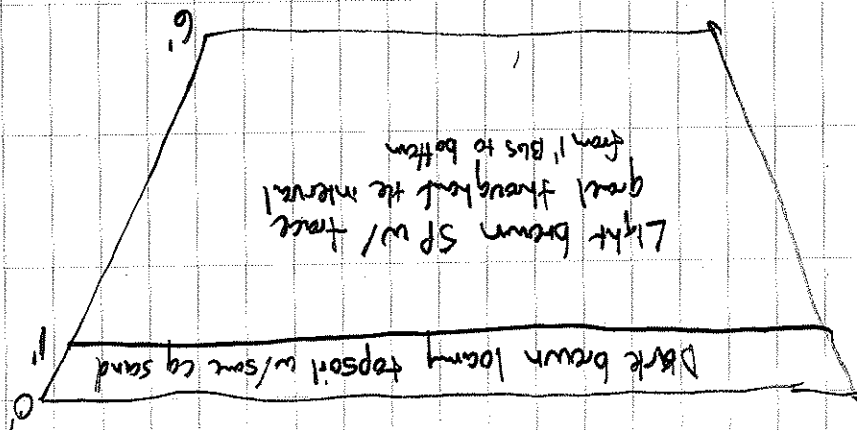 0'
Dark brown loamy topsoil w/some cg sand
1'
Light brown SP w/ trace
gravel throughout the interval
from 1' BGS to bottom
6'